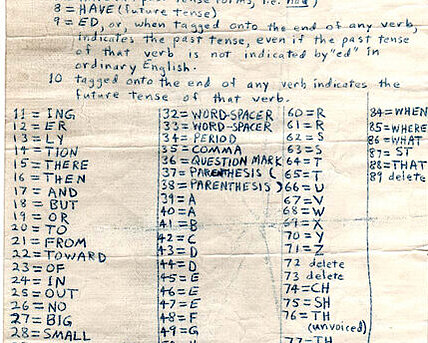 past tense forms, i.e. had)
8 = HAVE (future tense)
9 = ED, or, when tagged onto the end of any verb,
indicates the past tense, even if the past tense
of that verb is not indicated by "ed" in
ordinary English.
10 tagged onto the end of any verb indicates the
future tense of that verb.
11 = ING
12 = ER
13 = LY
14 = TION
15 = THERE
16 = THEN
17 = AND
18 = BUT
19 = OR
20 = TO
21 = FROM
22 = TOWARD
23 = OF
24 = IN
25 = OUT
26 = NO
27 = BIG
28 = SMALL
32 = WORD-SPACER
33 = WORD-SPACER
34 = PERIOD
35 = COMMA
36 = QUESTION MARK
37 = PARENTHESIS (
38 = PARENTHESIS )
39 = A
40 = A
41 = B
42 = C
43 = D
44 = D
45 = E
46 = E
47 = E
48 = F
49 = G
60 = R
61 = R
62 = S
63 = S
64 = T
65 = T
66 = U
67 = V
68 = W
69 = X
70 = Y
71 = Z
72 delete
73 delete
74 = CH
75 = SH
76 = TH
(unvoiced)
77 = TH
84 = WHEN
85 = WHERE
86 = WHAT
87 = ST
88 = THAT
89 delete